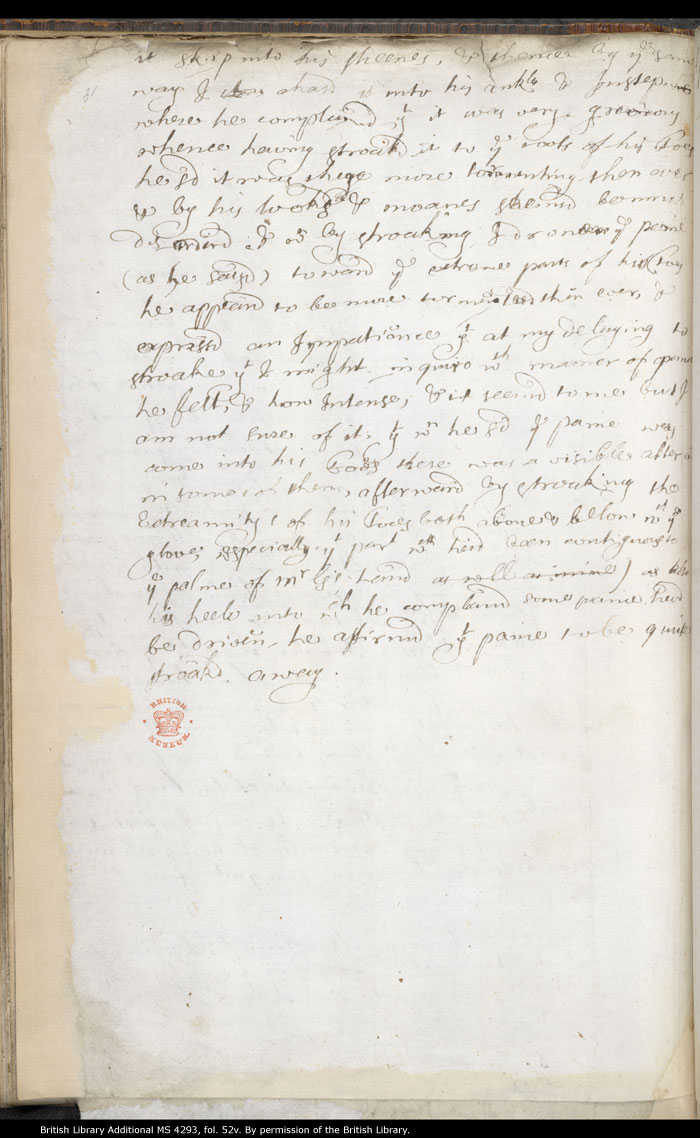 it skip into his kneenes, & thence by ye same
way I chased it into his ankle & Instep
where he complained yt it was very grevious
whence haveing stroak'd it to ye roots of his Toes
he s'd it was there more tormenting then ever
& by his looks & moanes seemd be much
disorderd & wn by stroaking I droven ye paine
(as he said) toward ye extreme parts of his Toes
he appeard to be more tormented then ever, &
expressd an Impatience yt at my delaying to
stroake yt I might inquire wt manner of paine
he felt, & how Intense; & it seemd to me but I
am not sure of it; yt wn he sd ye paine was
come into his Toes there was a visible alteration
in some of them, afterward by stroaking the
Extreamitys of his Toes both above & below wth ye
glove, especially yt part wch had been contiguous to
ye palme of Mr Gs. hand as well as mine) as also
his heele into wch he complaind some paine had
be driven, he affirmd yt paine to be quite
stroakd away.
BRITISH MUSEUM
British Library Additional MS 4293, fol. 52v. By permission of the British Library.